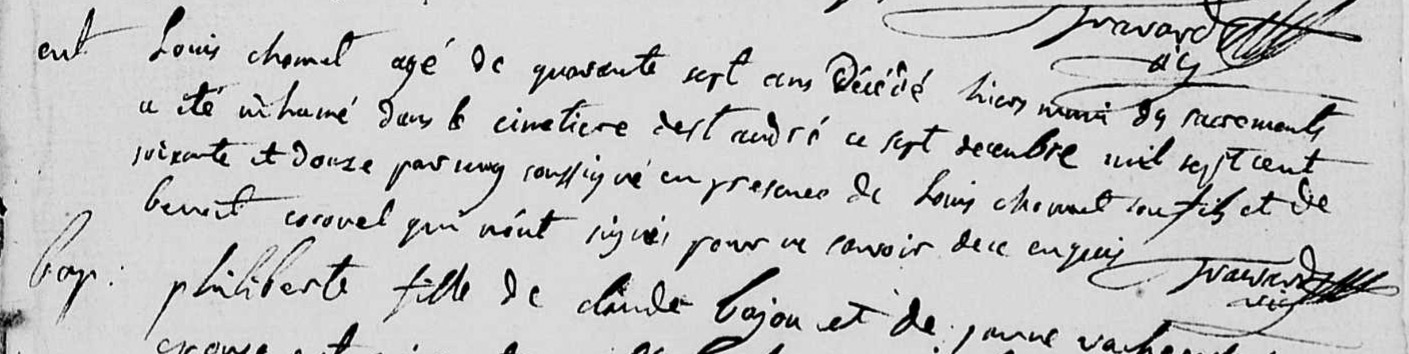 ent Louis chomet agé de quarante sept ans Décédé hier muni des sacrements
a été inhumé dans le cimetiere de st andré ce sept decembre mil sept cent
soixante et douze par moy soussigné en presence de Louis chomet son fils et de
benoit qui n'ont signés pour ne savoir de ce enquis
bap. philiberte fille de claude bajou et de janne